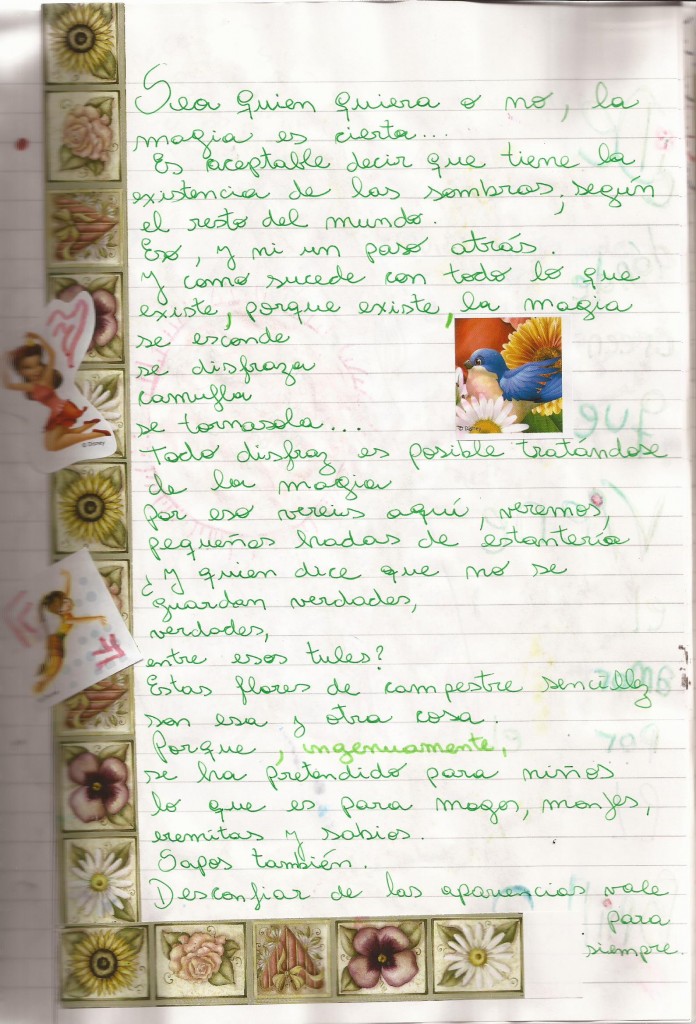 Sea quien quiera o no, la
magia es cierta...
Es aceptable decir que tiene la
existencia de las sombras, según
el resto del mundo.
Eso, y ni un paso atrás.
Y como sucede con todo lo que
existe, porque existe, la magia
se esconde
se disfraza
camufla
se tornasola...
Todo disfraz es posible tratándose
de la magia
por eso vereis aquí, veremos,
pequeños hadas de estantería
¿Y quien dice que no se
guardan verdades,
verdades,
entre esos tules?
Estas flores de campestre sencillez
son esa y otra cosa.
Porque, ingenuamente,
se ha pretendido para niños
lo que es para magos, monjes,
eremitas y sabios.
Sapos también.
Desconfiar de las apariencias vale
para
siempre.
© Disney